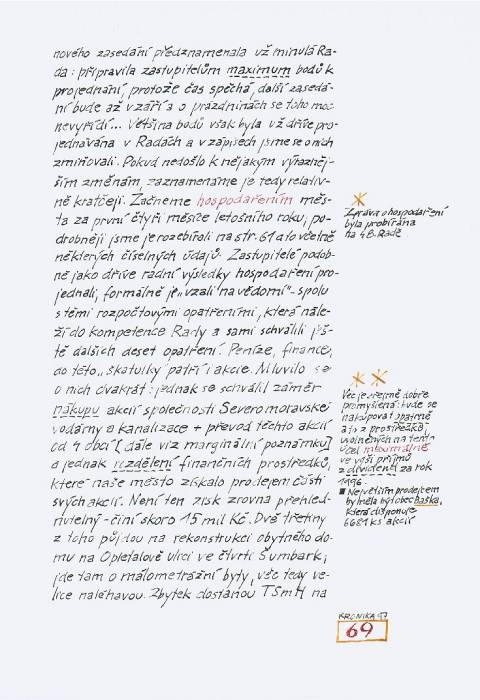 nového zasedání předznamenala už minulá Ra-
da: připravila zastupitelům maximum bodů k
projednání, protože čas spěchá, další zasedá-
ní bude až v září a o prázdninách se toho moc
nevyřídí... Většina bodů však byla už dříve pro-
jednávána v Radách a v zápisech jsme se o nich
zmiňovali. Pokud nedošlo k nějakým výrazněj-
ším změnám, zaznamenáme je tedy relativ-
ně kratčeji. Začneme hospodařením měs-
ta za první čtyři měsíce letošního roku, po-
drobněji jsme je rozebírali na str. 61 a to včetně
některých číselných údajů. Zastupitelé podob-
ně jako dříve radní výsledky hospodaření pro-
jednali, formálně je „vzali na vědomí"- spolu
s těmi rozpočtovými opatřeními, která nále-
ží do kompetence Rady a sami schválili ješ-
tě dalších deset opatření. Peníze, finance,
do této „škatulky" patří i akcie. Mluvilo se
o nich dvakrát: jednak se schválil záměr
nákupu akcií společnosti Severomoravské
vodárny a kanalizace + převod těchto akcií
od 4 obcí [dále viz marginální poznámku]
a jednak rozdělení finančních prostředků,
které naše město získalo prodejem části
svých akcií. Není ten zisk zrovna přehléd-
nutelný - činí skoro 15 mil Kč. Dvě třetiny
z toho půjdou na rekonstrukci obytného do-
mu na Opletalově ulici ve čtvrti Šumbark,
jde tam o málometrážní byty, věc tedy ve-
lice naléhavou. Zbytek dostanou TSmH na
Zpráva o hospodaření
byla probírána
na 48. Radě
Věc je zřejmě dobře
promyšlená: bude se
nakupovat opatrně
a to z prostředků,
uvolněných na tento
účel maximálně
ve výši příjmů
z dividend za rok
1996.
■ Největším prodejcem
by měla být obec Baška,
která disponuje
6681 ks akcií
KRONIKA 97
69